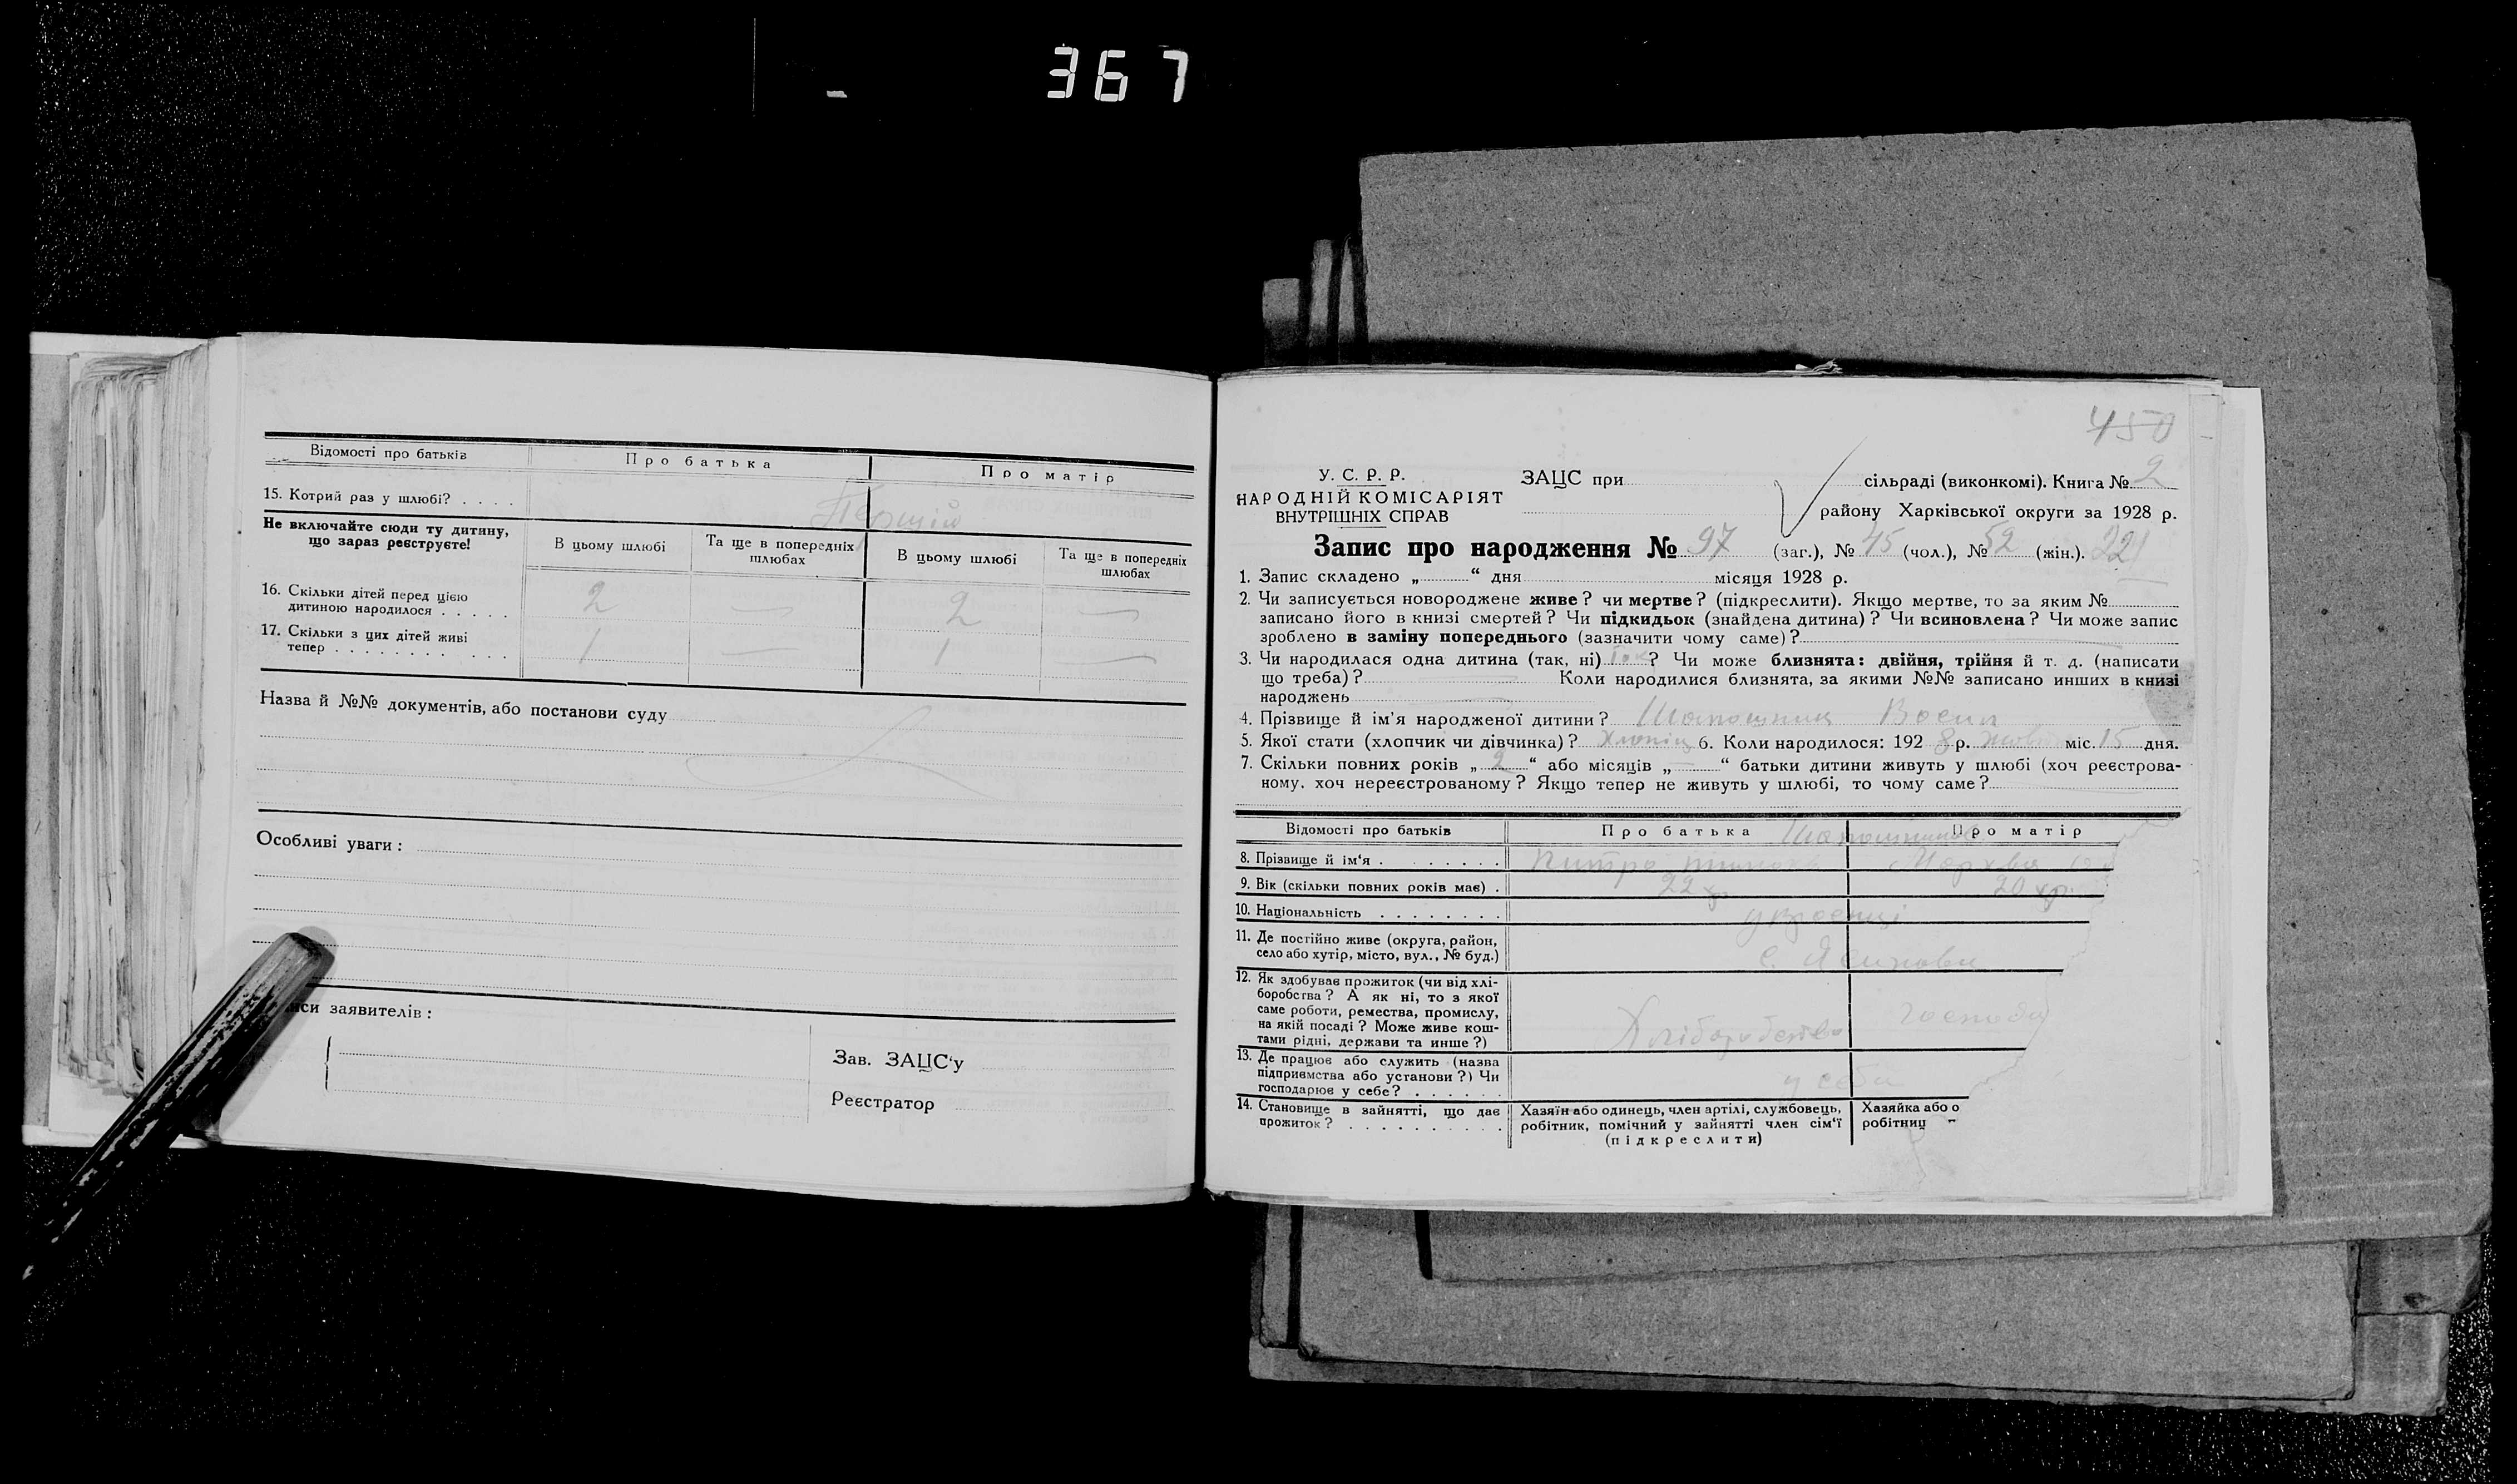 367
Відомості про батьків Про батька Про матір
15. Котрий раз у шлюбі? . . . . Перший
Не включайте сюди ту дитину, що зараз реєструєте!
В цьому шлюбі Та ще в попередніх шлюбах В цьому шлюбі Та ще в попередніх шлюбах
16. Скільки дітей перед цією
дитиною народилося . . . . . 2 — 2 —
17. Скільки з цих дітей живі
тепер . . . . . . . . . . . 1 — 1 —
Назва й №№ документів, або постанови суду
Особливі уваги :
иси заявителів :
Зав. ЗАЦС'у
Реєстратор
450
У. С. Р. Р. ЗАЦС при сільраді (виконкомі). Книга № 2
НАРОДНІЙ КОМІСАРІЯТ
ВНУТРІШНІХ СПРАВ району Харківської округи за 1928 р.
Запис про народження № 97 (заг.), № 45 (чол.), № 52 (жін.). 221
1. Запис складено „ “ дня місяця 1928 р.
2. Чи записується новороджене живе? чи мертве? (підкреслити). Якщо мертве, то за яким №
записано його в книзі смертей? Чи підкидьок (знайдена дитина)? Чи всиновлена? Чи може запис
зроблено в заміну попереднього (зазначити чому саме)?
3. Чи народилася одна дитина (так, ні) так? Чи може близнята: двійня, трійня й т. д. (написати
що треба)? — Коли народилися близнята, за якими №№ записано инших в книзі
народжень —
4. Прізвище й ім'я народженої дитини?
5. Якої стати (хлопчик чи дівчинка)? Хлопіц 6. Коли народилося: 192 8 р. жов міс. 15 дня.
7. Скільки повних років „ 2 “ або місяців „ — “ батьки дитини живуть у шлюбі (хоч реєстрова-
ному, хоч нереєстрованому? Якщо тепер не живуть у шлюбі, то чому саме?
Відомості про батьків Про батька Про матір
8. Прізвище й ім'я . . . . . . .
9. Вік (скільки повних років має) . 22 20
10. Національність . . . . . . . .
11. Де постійно живе (округа, район,
село або хутір, місто, вул., № буд.) с.
12. Як здобуває прожиток (чи від хлі-
боробства? А як ні, то з якої
саме роботи, ремества, промислу,
на якій посаді? Може живе кош-
тами рідні, держави та инше?) Хліборобство господа
13. Де працює або служить (назва
підприємства або установи?) Чи
господарює у себе? . . . . . . у себе
14. Становище в зайнятті, що дає
прожиток? . . . . . . . . . .
Хазяїн або одинець, член артілі, службовець,
робітник, помічний у зайнятті член сім'ї
(підкреслити)
Хазяйка або о
робітниц